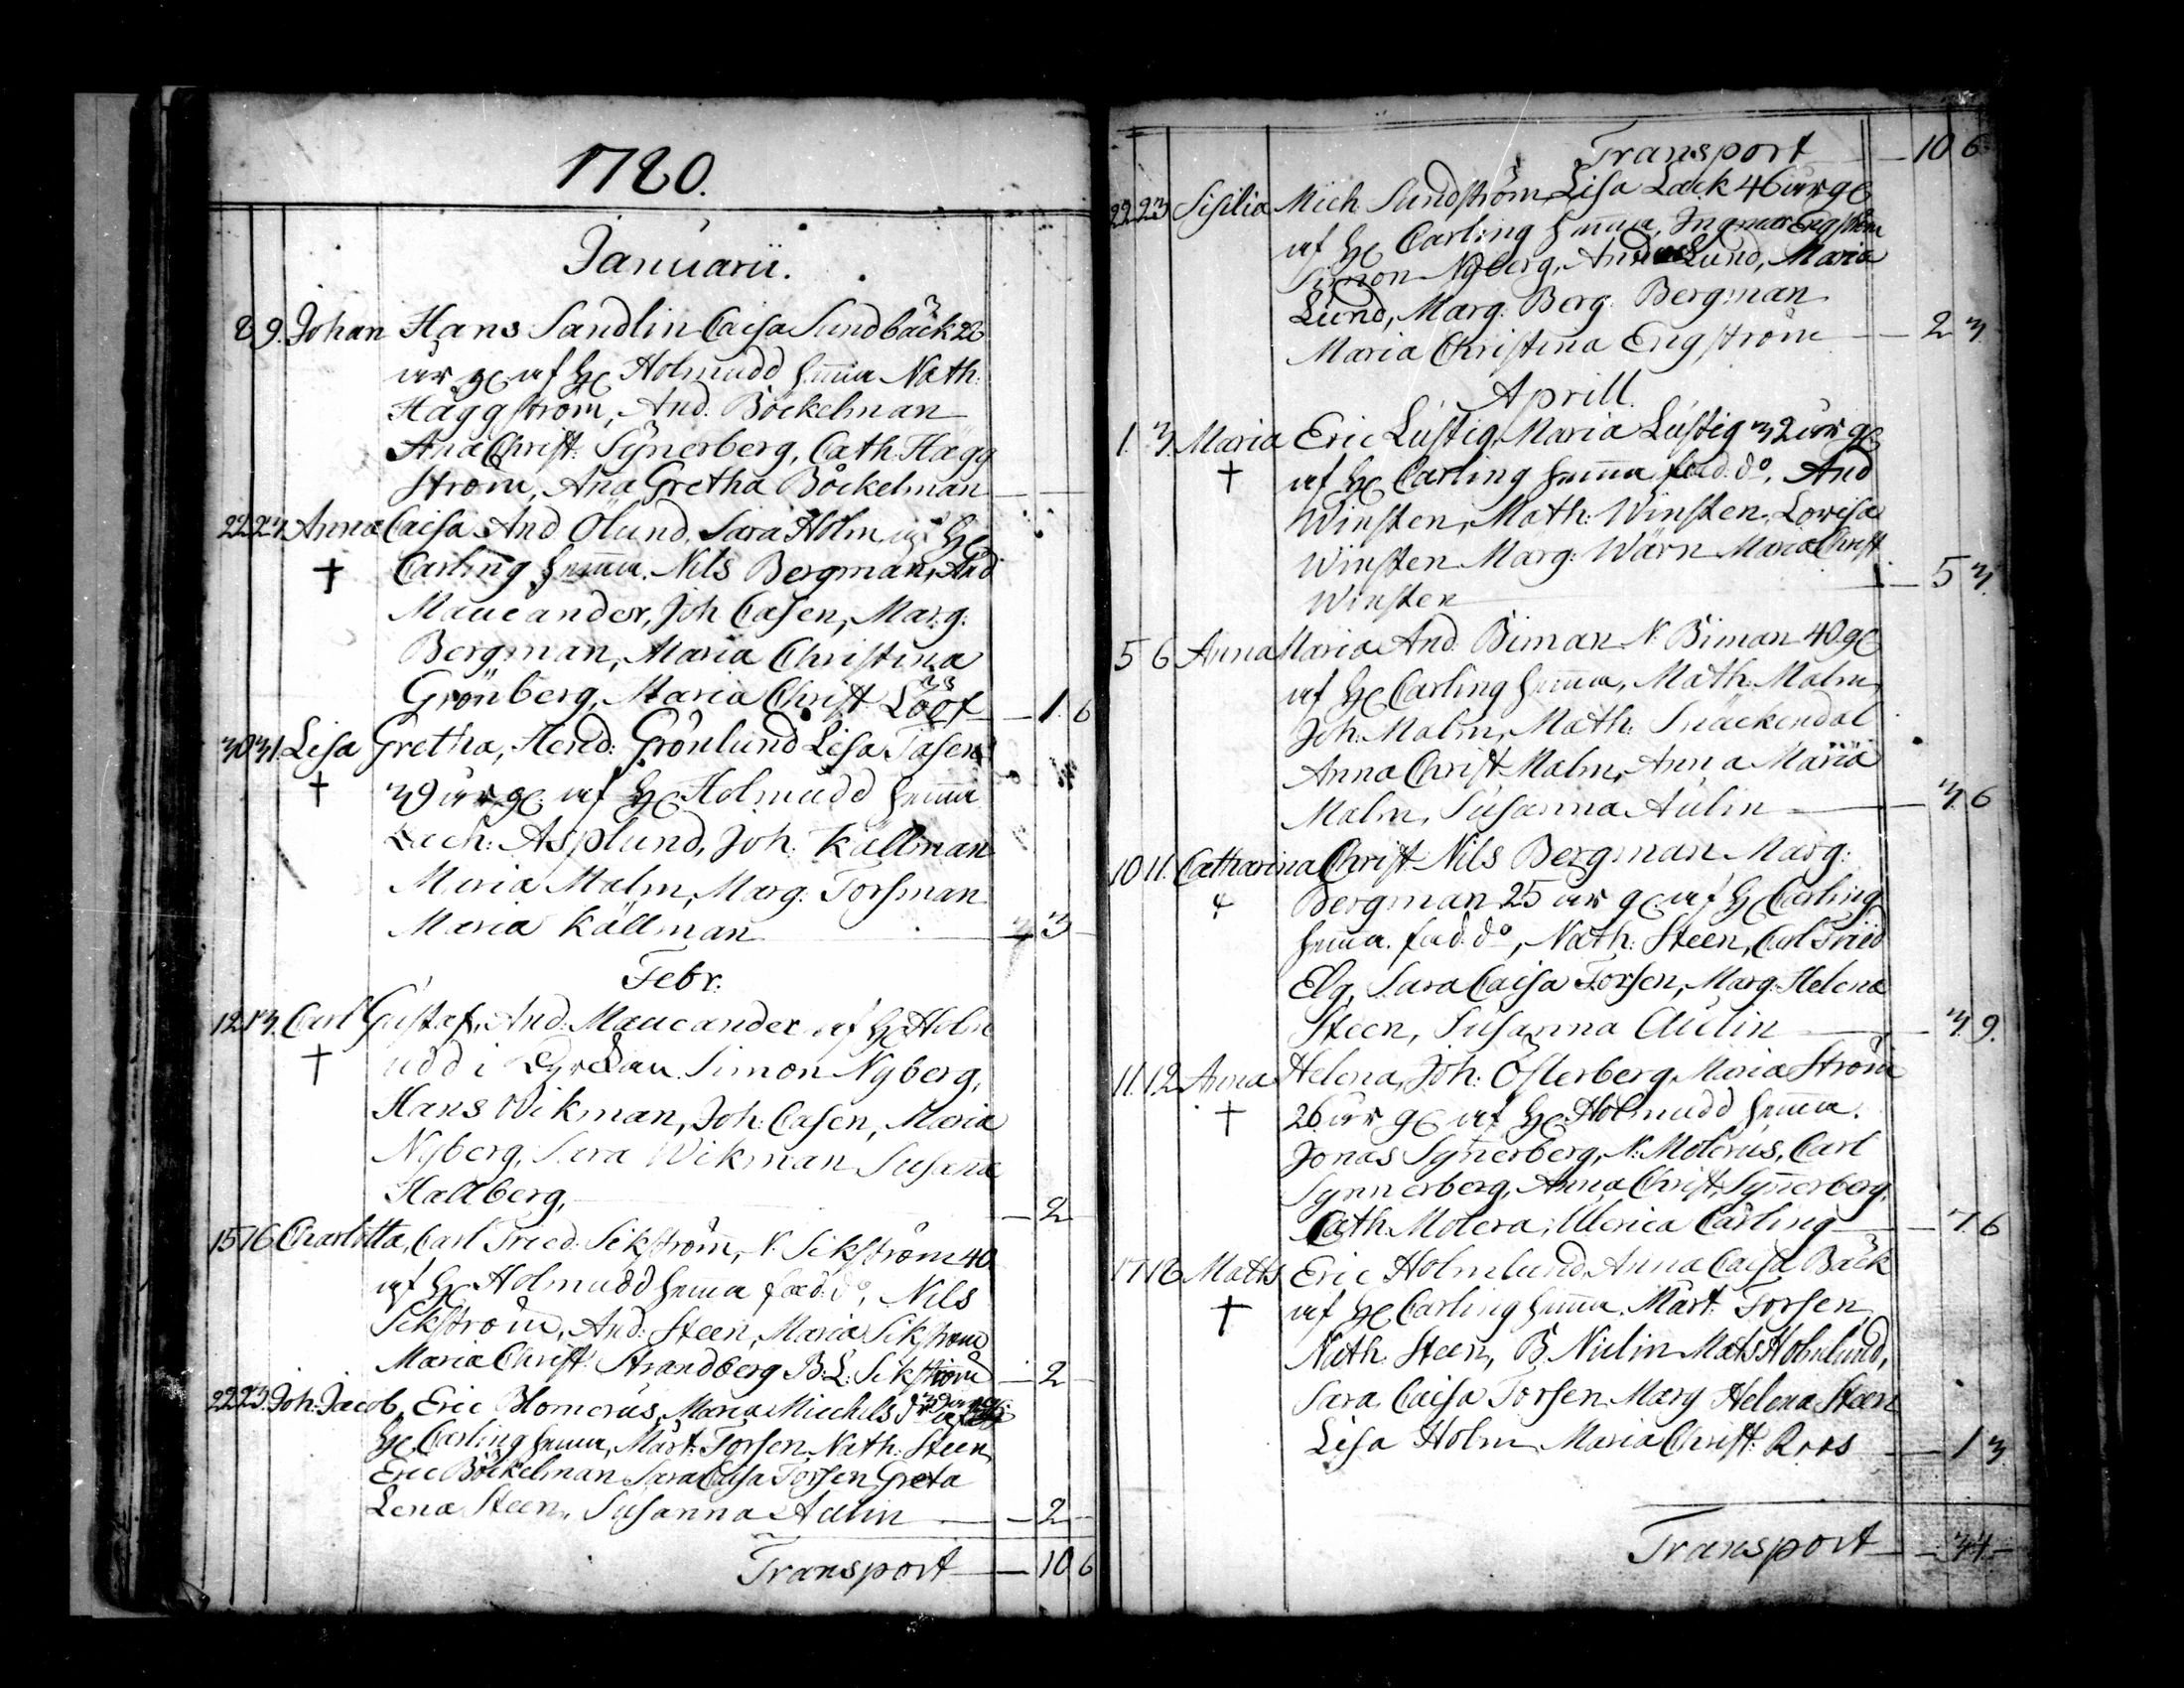 1780.
Januarii.
8 9. Johan Hans Sandlin Caisa Sundbäck 28
år gl af H Holmudd hemma Nath.
Häggström, And. Böckelman
Ana Christ. Synerberg, Cath. Hägg
ström, Ana Gretha Böckelman
22 23. Anna Caisa And Olund, Sara Holm af H
† Carling hemma. Nils Bergman, And
Maueander, Joh Casen, Marg.
Bergman, Maria Christina
Grönberg, Maria Christ Lööf — 1. 6
30 31. Lisa Gretha, Hend: Grönlund Lisa Tasen
† 39 år gl. af H Holmudd hemma
Zach: Asplund, Joh. Källman
Maria Malm, Marg. Forsman
Maria Källman — 3
Febr.
12 13. Carl Gustaf, And. Maueander af H Holm
† udd i Kyrckan. Simon Nyberg,
Hans Wikman, Joh: Casen, Maria
Nyberg, Sara Wikman Susana
Hallberg, — 2
15 16 Charlotta, Carl Fried. Sikström, N. Sikström 40
af H Holmudd hemma fad. do, Nils
Sikström, And: Steen, Maria Sikström
Maria Christ. Strandberg B: L: Sikström — 2
22 23. Joh. Jacob, Eric Blomerus, Maria Michels dr
H Carling hemma, Mårt. Forsen, Nath: Steen
Eric Böckelman Sara Caisa Forsen Greta
Lena Steen, Susanna Aulin — 2 -
Transport — 10 6
Transport — 10 6.
22 23 Sisilia Mich. Sundström, Lisa Lack 46 år gl
af H Carling hemma, Ingmar Engström
Simon Nyberg, And Lund, Maria
Lund, Marg. Berg. Bergman
Maria Christina Engström — 2 3
Aprill.
1. 3. Maria Eric Lustig, Maria Lustig 32 år gl
† af H Carling hemma fad. do, And
Winsten, Math: Winsten, Lovisa
Winsten Marg: Wärn Maria Christ
Winsten — 5 3.
5 6 Anna Maria And. Biman N. Biman 40 gl
af H Carling hemma, Math. Malm
Joh. Malm, Math. Snäckendal
Anna Christ Malm, Anna Maria
Malm, Susanna Aulin — 3. 6
10 11. Catharina Christ. Nils Bergman Marg:
Bergman 25 år gl. af H Carling
hemma. fad. do, Nath: Steen, Carl Fried
Elg, Sara Caisa Forsen, Marg. Helena
Steen, Susanna Aulin — 3. 9.
11. 12 Anna Helena, Joh: Österberg, Maria Ström
† 26 år gl af H Holmudd hemma.
Jonas Synerberg, N: Molerus, Carl
Synnerberg, Anna Christ, Synnerberg,
Cath. Molera, Ulerica Carling — 7. 6
17 18 Matts Eric Holmlund, Anna Caisa Bäck
† af H Carling hemma. Mårt: Forsen
Nath. Steen, B. Niulin Mats Holmlund,
Sara Caisa Forsen Marg Helena Steen
Lisa Holm Maria Christ: Roos — 1 3
Transport — 34 -